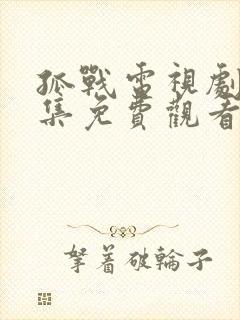 孤戰電視劇
集免費觀看
拏着破輪子